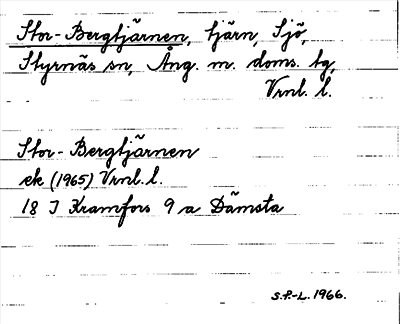 Stor-Bergtjärnen, tjärn, Sjö,
Styrnäs sn, Ång. m. doms. tg,
Vrnl. l.
Stor-Bergtjärnen
ek (1965) Vrnl. l.
18 I Kramfors 9 a Dämsta
S.P.-L. 1966.